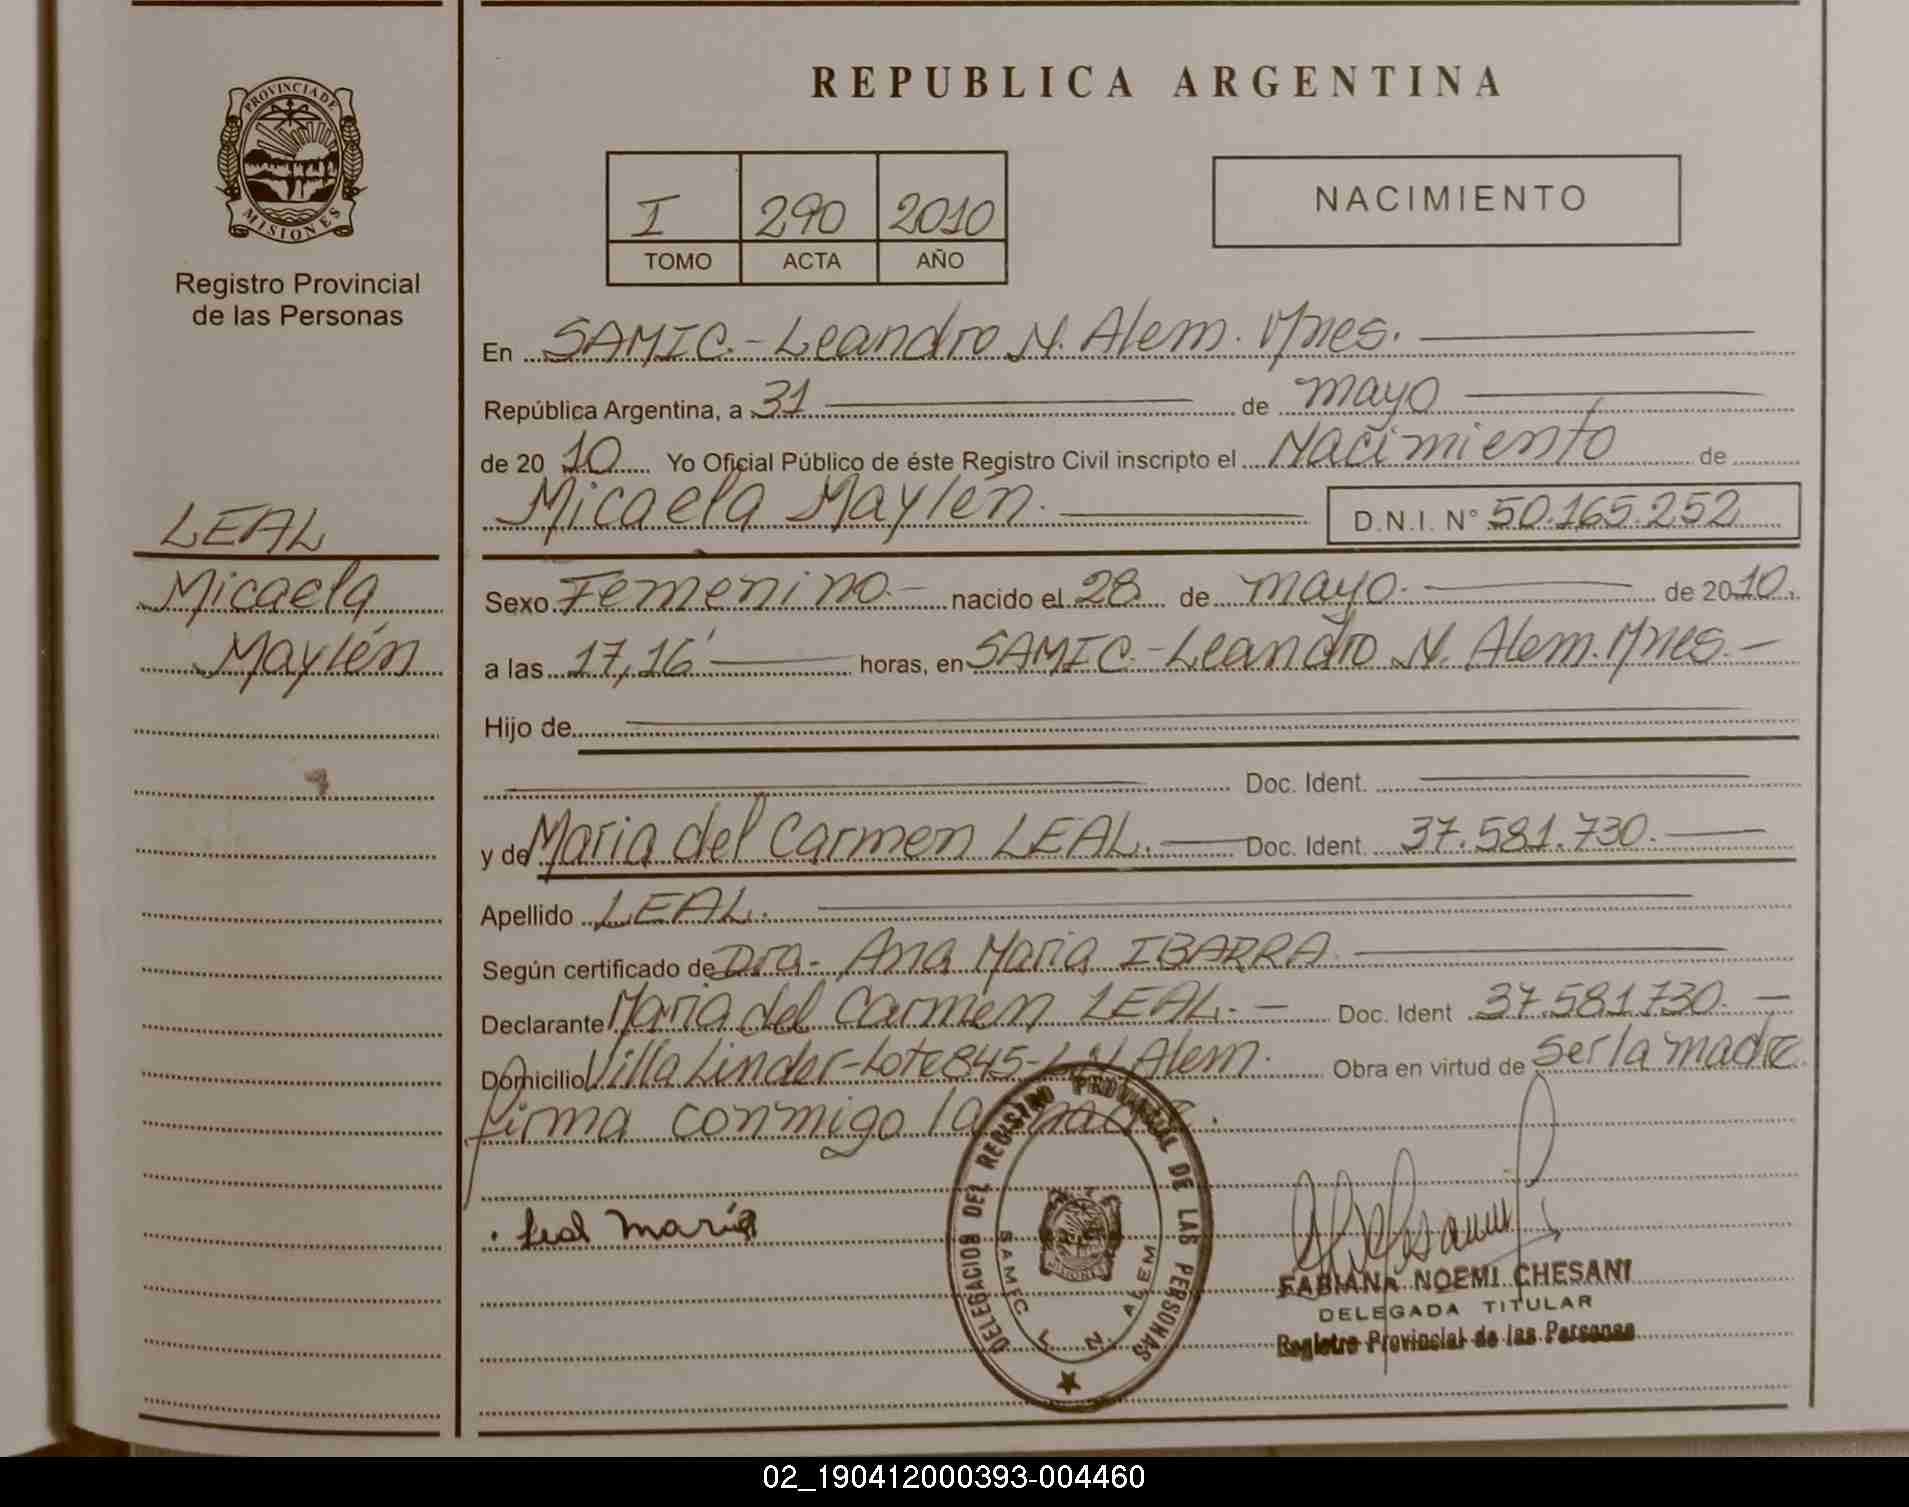 PROVINCIA DE
MISIONES
Registro Provincial
de las Personas
LEAL
Micaela
Maylén
REPUBLICA ARGENTINA
I 290 2010
TOMO ACTA AÑO
NACIMIENTO
En SAMIC.- Leandro N. Alem. Mnes.
República Argentina, a 31 de mayo
de 20 10 Yo Oficial Público de éste Registro Civil inscripto el Nacimiento de
Micaela Maylén. D.N.I. N° 50.165.252
Sexo Femenino.- nacido el 28 de mayo. de 2010.
a las 17,16' horas, en SAMIC.-Leandro N. Alem. Mnes.-
Hijo de
Doc. Ident.
y de Maria del Carmen LEAL. Doc. Ident. 37.581.730.
Apellido LEAL.
Según certificado de Dra. Ana Maria IBARRA.
Declarante Maria del Carmen LEAL.- Doc. Ident 37.581.730.-
Domicilio Villa Linder-Lote 845-L.N. Alem. Obra en virtud de Ser la madre
firma conmigo la madre.
Leal maría
DELEGACION DEL REGISTRO PROVINCIAL DE LAS PERSONAS
SAMIC L. N. ALEM
MISIONES
FABIANA NOEMI CHESANI
DELEGADA TITULAR
Registro Provincial de las Personas
02_190412000393-004460